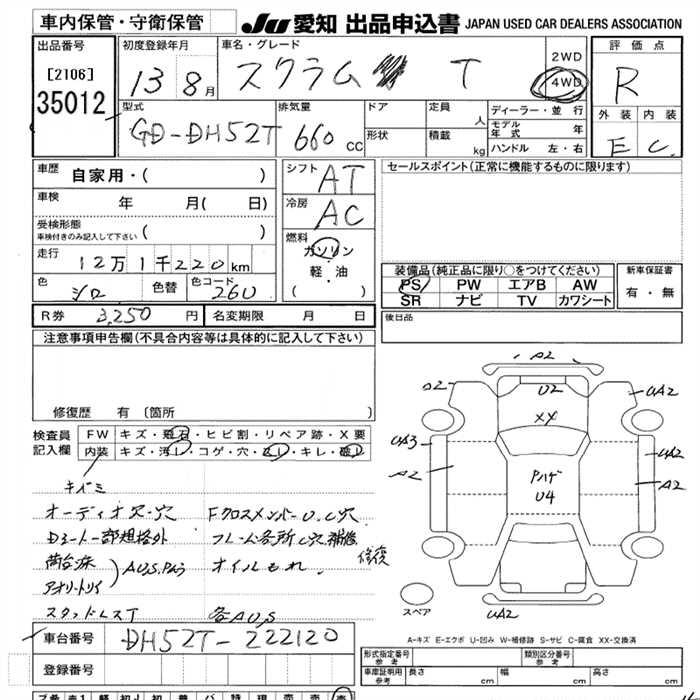 車内保管・守衛保管 JU 愛知 出品申込書 JAPAN USED CAR DEALERS ASSOCIATION
出品番号 [2106] 35012
初度登録年月 13 8月
車名・グレード スクラム T
2WD
4WD
評価点 R
外装 内装
E C
型式 GD-DH52T
排気量 660 CC
ドア 定員 人
形状 積載 kg
ディーラー・並行
モデル年式 年
ハンドル 左・右
車歴 自家用・( )
車検 年 月( 日)
受検形態 車検付きのみ記入して下さい ( )
走行 12万1千220km
色 シロ 色替 色コード 26U
シフト AT
冷房 AC
燃料 ガソリン
軽・油
( )
セールスポイント(正常に機能するものに限ります)
装備品(純正品に限り○をつけてください)
PS PW エアB AW
SR ナビ TV カワシート
新車保証書
有・無
R券 3,250円 名変期限 月 日
後日品
注意事項申告欄(不具合内容等は具体的に記入して下さい)
修復歴 有 〔箇所 〕
検査員記入欄 FW キズ・飛石・ヒビ割・リペア跡・X要
内装 キズ・汚れ・コゲ・穴・・キレ・破れ
キバミ
オーディオ欠・穴 FクロスメンバーU、C穴
Dシート一部規格外 フレーム各所C穴補修 修復
荷台床 オイルもれ
スタッドレスT 各AU,S
A2
U2 U2 UA2
XX
UA3 UA2
A2 Pハゲ A2
U4
スペア UA2
A-キズ E-エクボ U-凹み W-補修跡 S-サビ C-腐食 XX-交換済
車台番号 DH52T-222120
登録番号
形式指定番号 参考 類別区分番号 参考
車庫証明用 参考 長さ cm 幅 cm 高さ cm